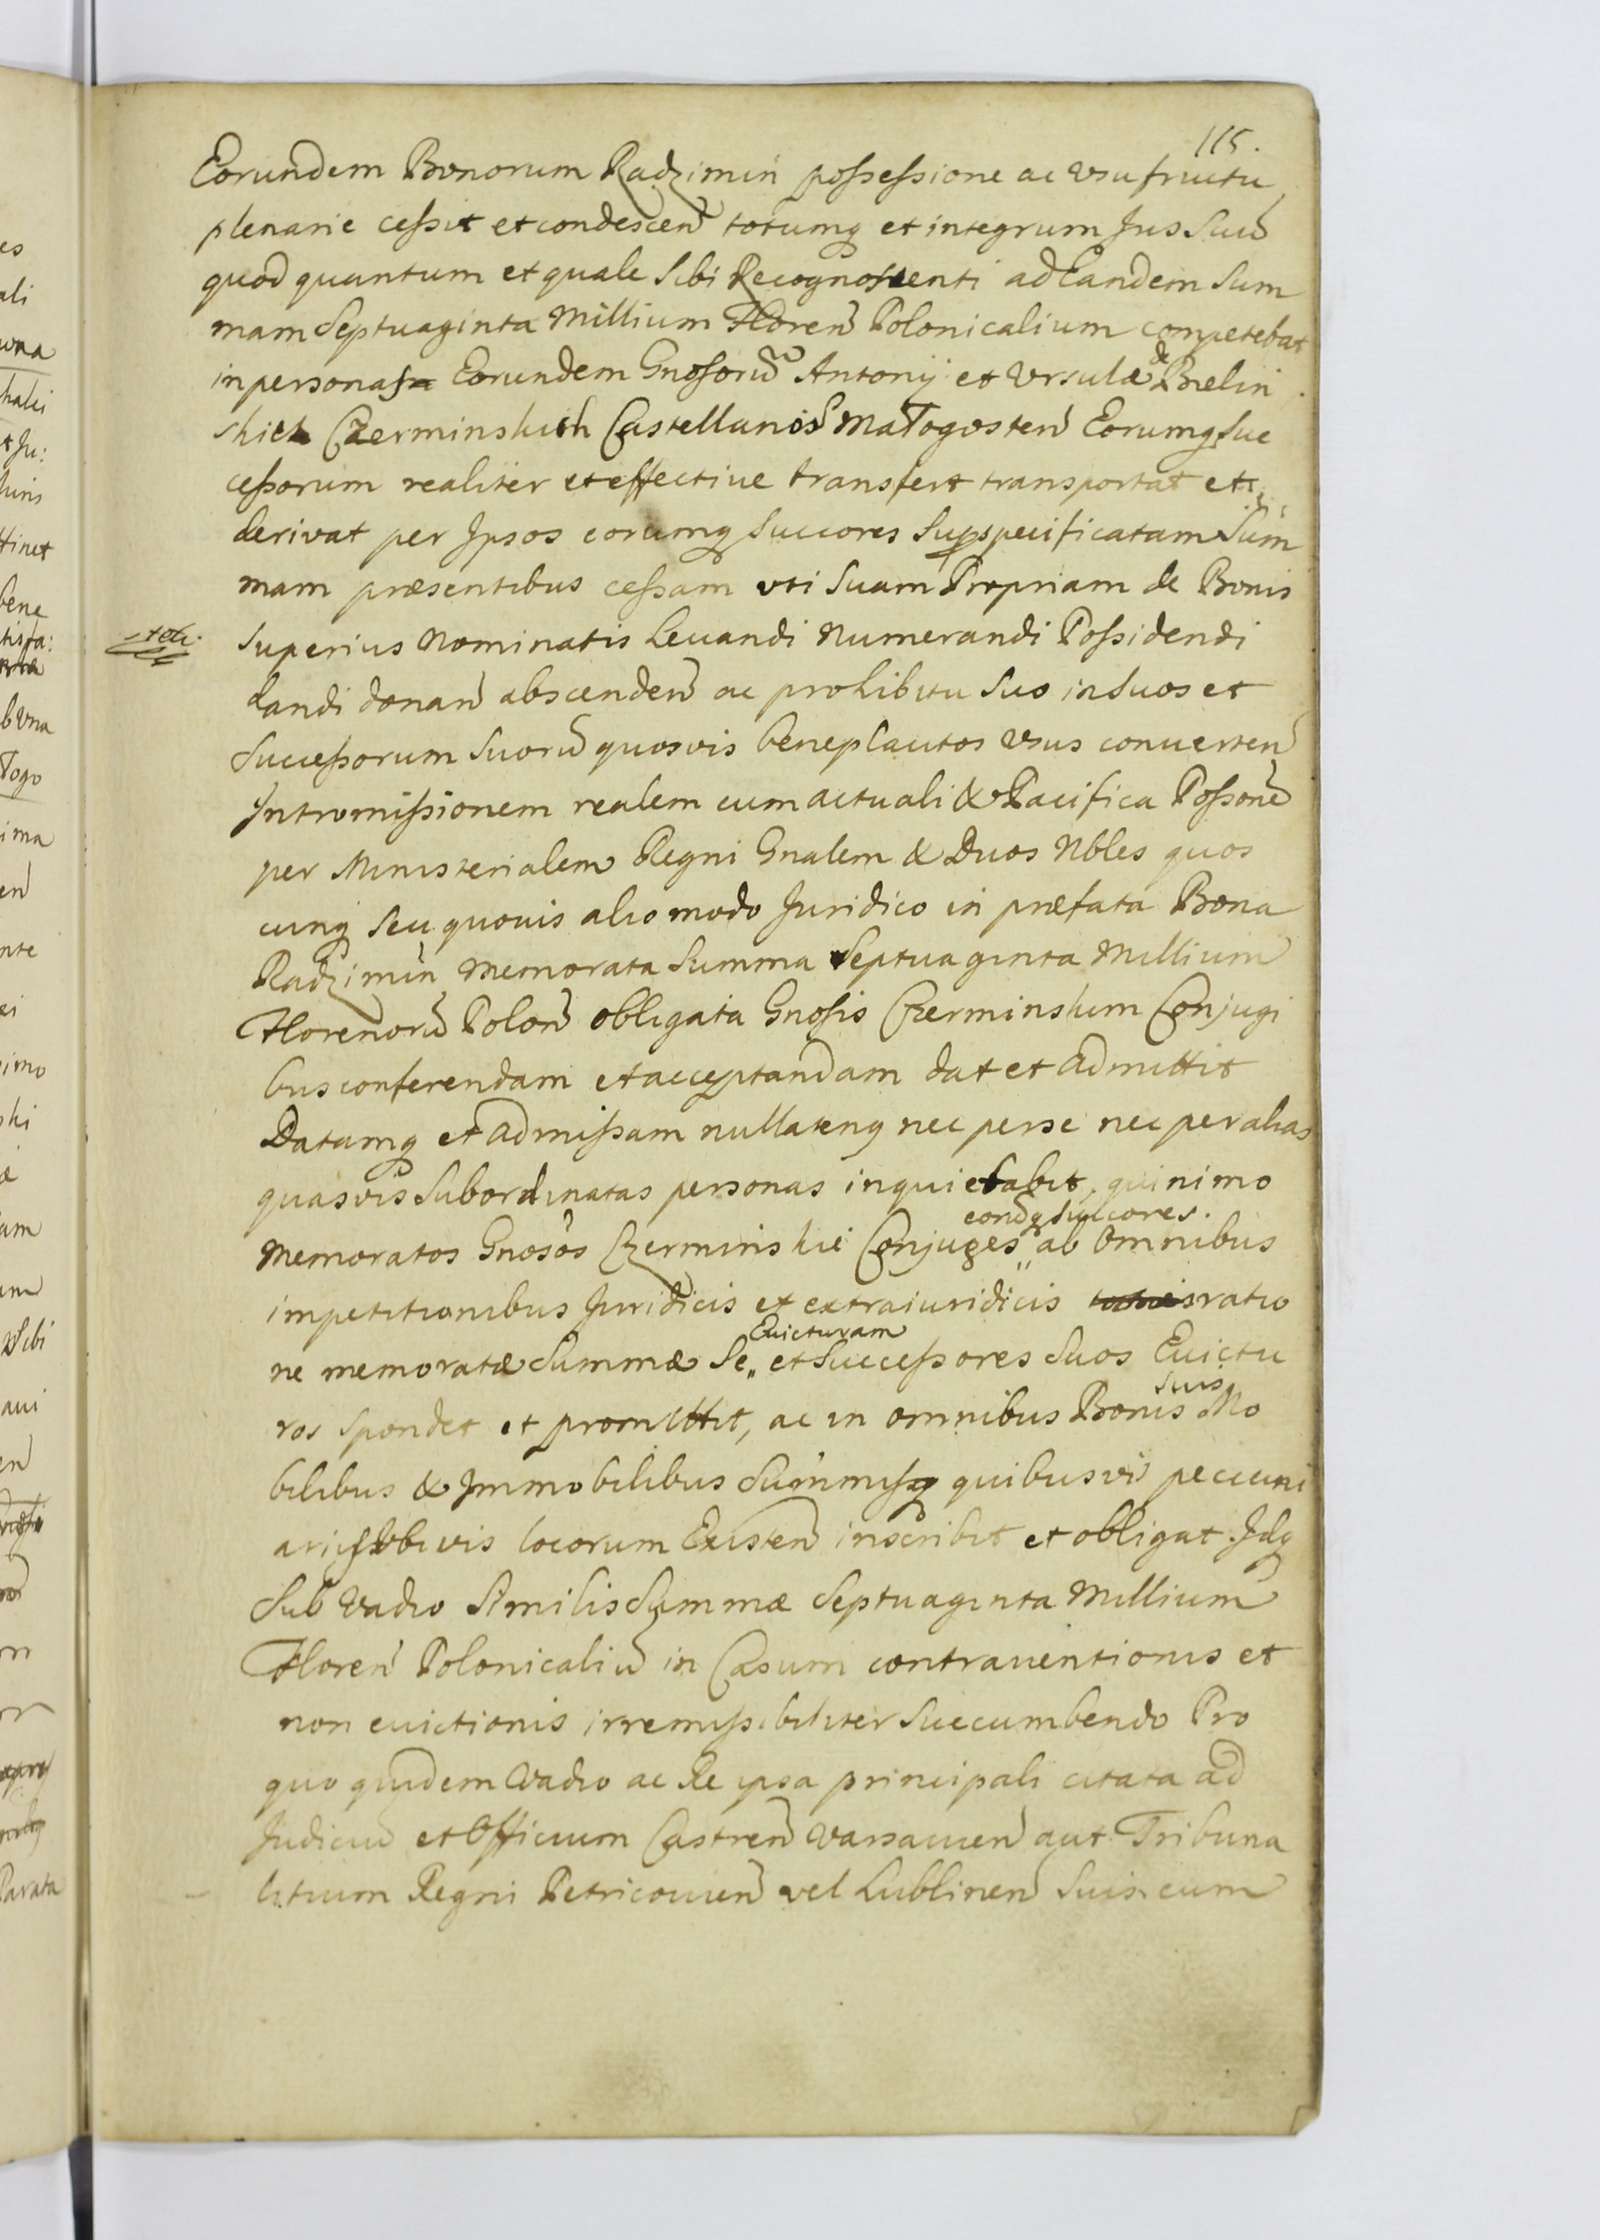 115.
Eorundem Bonorum Radzimin possessione ac vsufructu
plenarie cessit et condescen totumq et integrum Jus Suu
quod quantum et quale Sibi Recognoscenti ad Eandem Sum
mam Septuaginta Millium Floren Polonicalium competebat
in personas Eorundem Gnosoru Antonij et Vrsulæ de Bielin
skich Czerminskich Castellanos Małogosten Eorumq Suc
cessorum realiter et effective transfert transportat et
derivat per Ipsos eorumq succores Suprspecificatam Sum
mam præsentibus cessam vti Suam Propriam de Bonis
Superius Nominatis Levandi Numerandi Possidendi
dandi donan abscenden ac prolibitu Suo in Suos et
Successorum Suoru quosvis beneplacitos vsus converten
Intromissionem realem cum actuali & Pacifica Possone
per Ministerialem Regni Gnalem & Duos Nbles quos
cunq seu quovis alio modo Juridico in præfata Bona
Radzimin Memorata Summa Septuaginta Millium
Florenoru Polon obligata Gnosis Czerminskim Conjugi
bus conferendam et acceptandam dat et admittit
Datamq et admissam nullatenq nec per se nec per alias
quasvis Subordinatas personas inquietabit, quinimo
eorudq succores.
Memoratos Gnosos Czerminskie Conjuges" ab Omnibus
impetitionibus Juridicis et extraiuridicis ratio
Evicturam
ne memoratæ Summæ Se" et Successores Suos Evictu
suis
ros spondet et promittit, ac in omnibus Bonis Mo
bilibus & Immobilibus Summisq quibusvis pecuni
arijs vbivis locorum Existen inscribit et obligat. Idq
Sub Vadio Similis Summæ Septuaginta Millium
Floren Polonicaliu in Casum contraventionis et
non evictionis irremissibiliter Succumbendo Pro
quo quidem Vadio ac Re ipsa principali citata ad
Judiciu et Officium Castren Varsavien aut Tribuna
litium Regni Petricovien vel Lublinen Suis cum